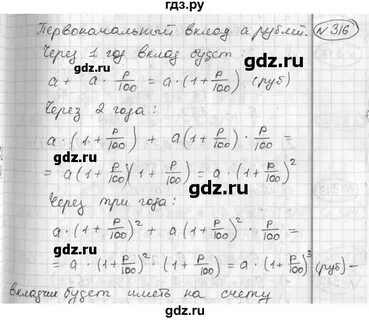 гдз.ру
Первоначальный вклад a рублей. №316
Через 1 год вклад будет:
a + a · p/100 = a · (1 + p/100) (руб)
gdz.ru gdz.ru
Через 2 года:
a · (1 + p/100) + a (1 + p/100) · p/100 =
gdz.ru gdz.ru
= a (1 + p/100)(1 + p/100) = a · (1 + p/100)²
gdz.ru gdz.ru
Через три года:
a · (1 + p/100)² + a (1 + p/100)² · p/100 =
gdz.ru gdz.ru
= a · (1 + p/100)² · (1 + p/100) = a · (1 + p/100)³ (руб) –
вкладчик будет иметь на счету
gdz.ru